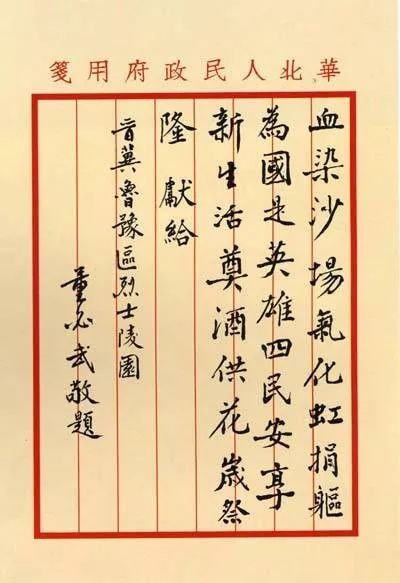 華北人民政府用箋
血染沙場氣化虹捐軀
為國是英雄四民安享
新生活奠酒供花歲祭
隆獻給
晉冀魯豫區烈士陵園
董必武敬題